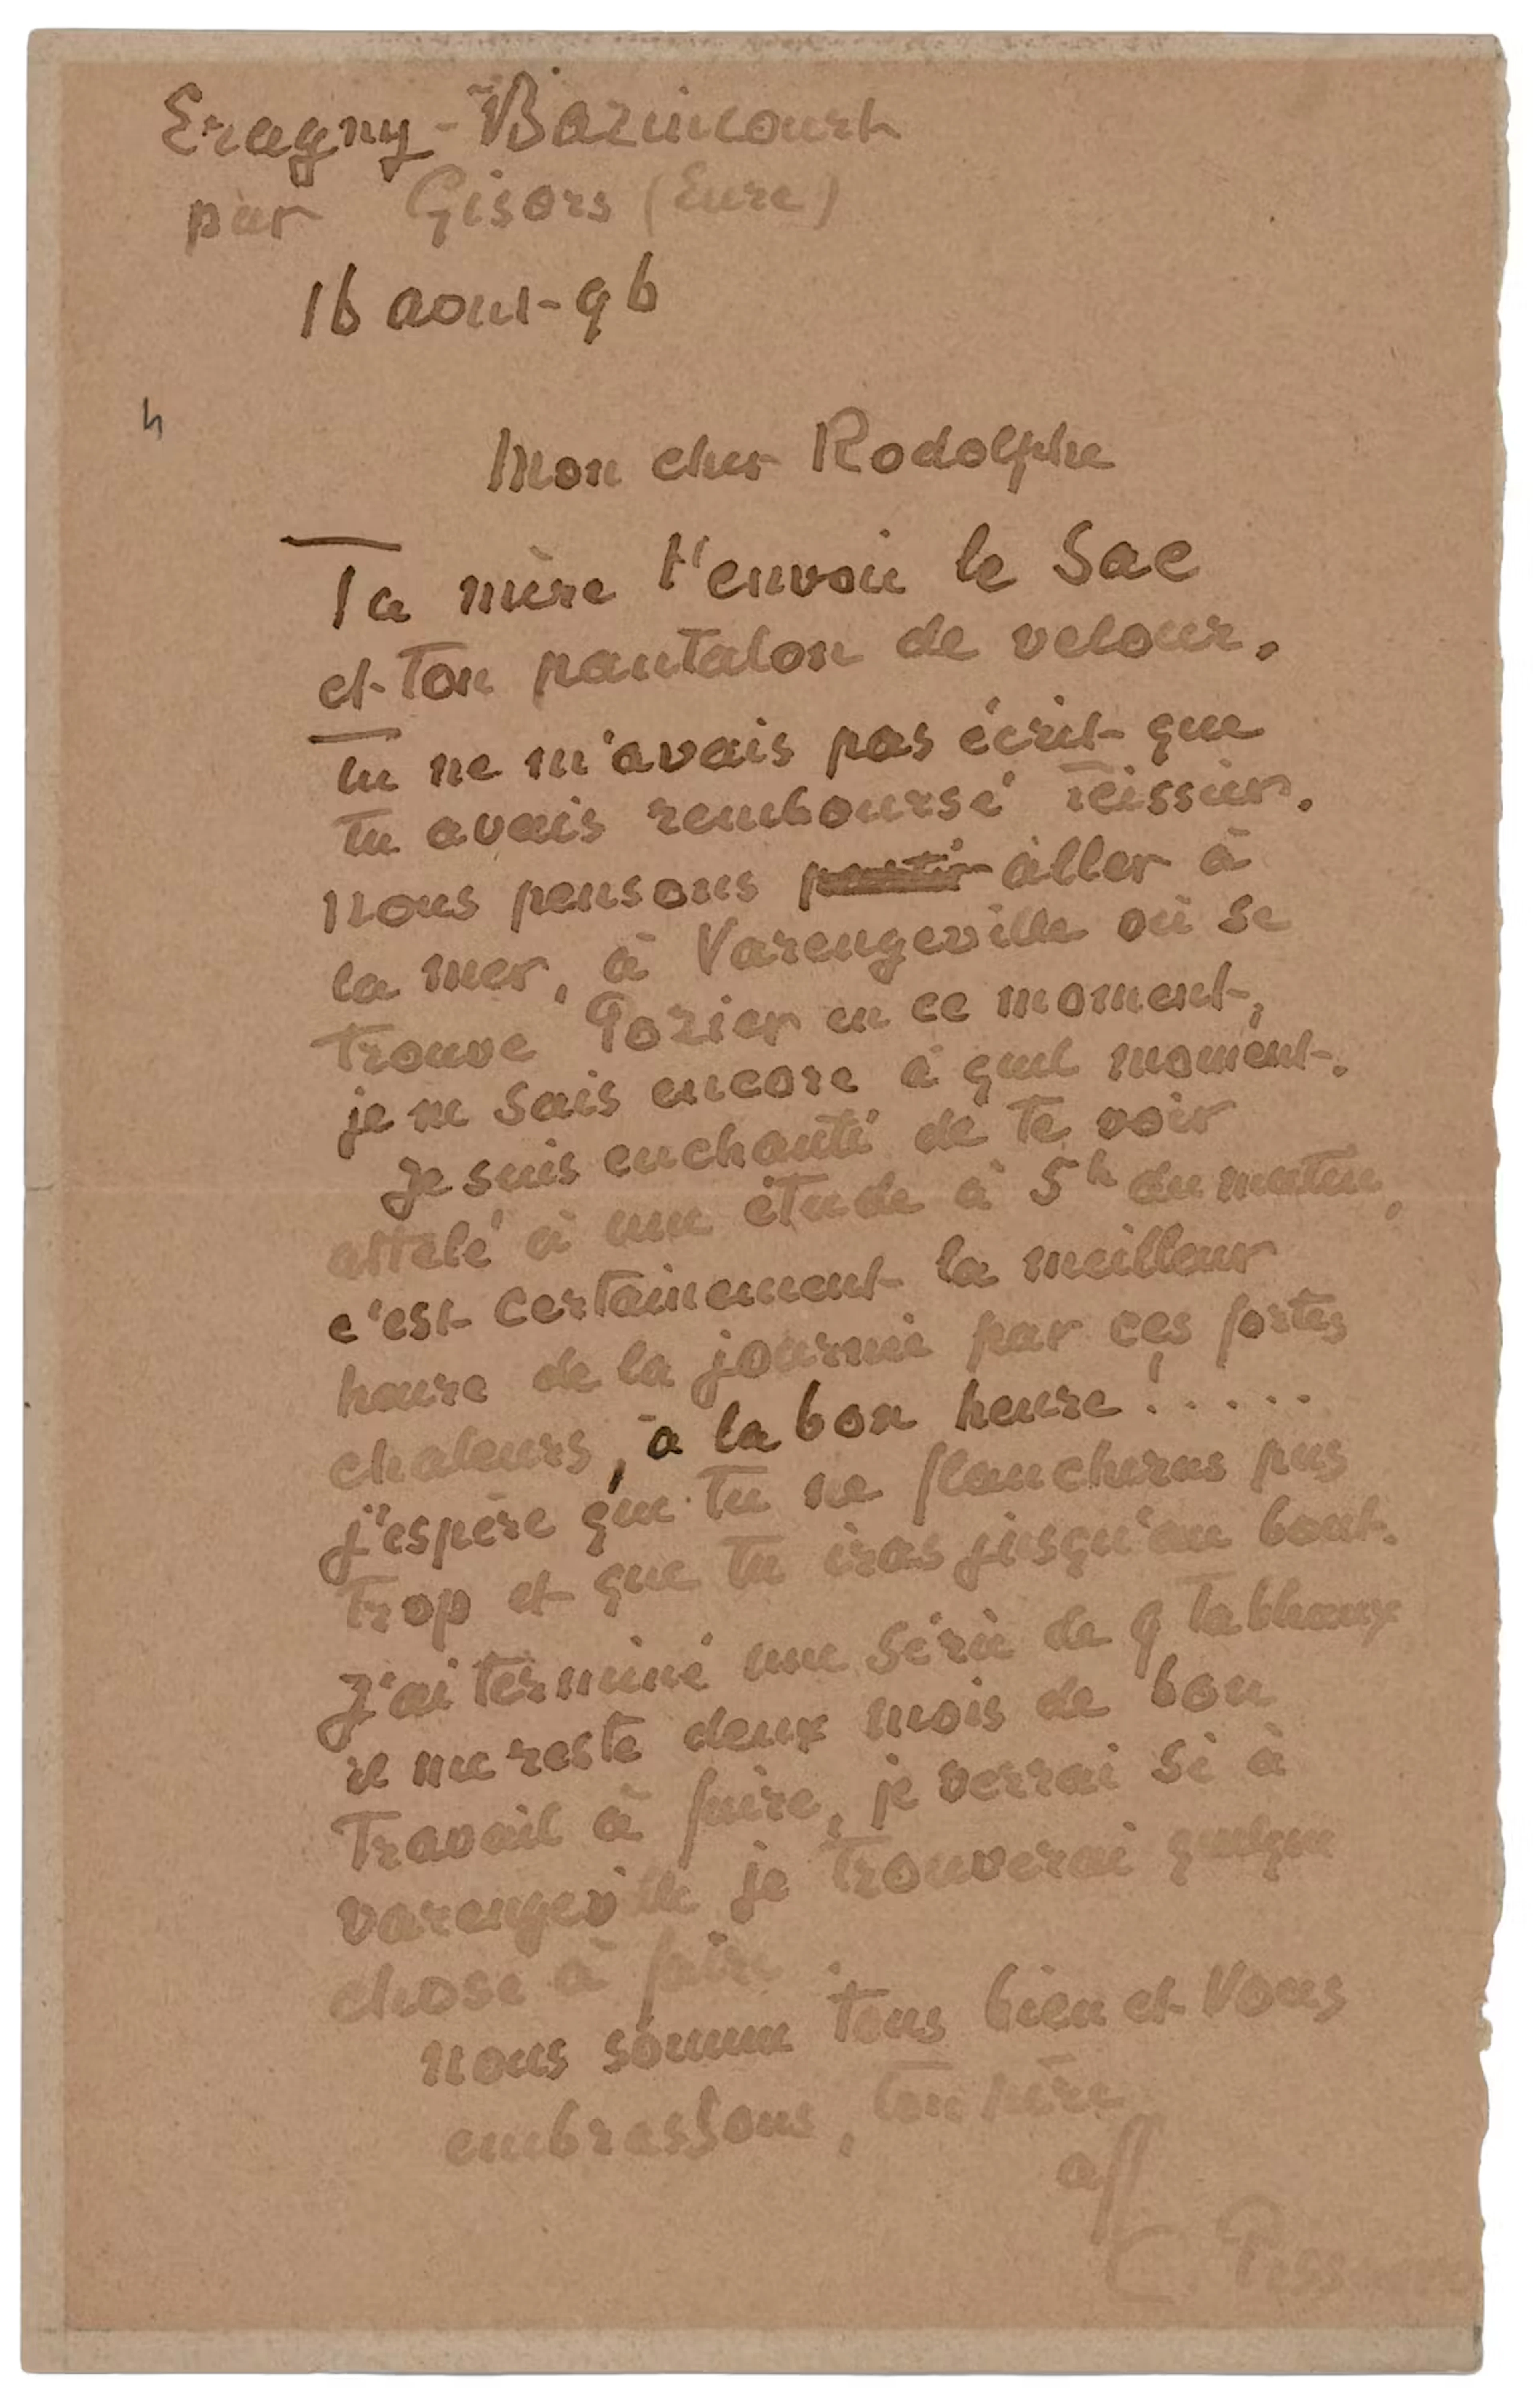 Eragny-Bazincourt
par Gisors (Eure)
16 aout-96
Mon cher Rodolphe
Ta mère t'envoie le Sac
et ton pantalon de velour.
Tu ne m'avais pas écrit que
tu avais remboursé Teissier.
Nous pensons partir aller à
la mer, à Varengeville où se
trouve Pozier en ce moment,
je ne sais encore à quel moment.
Je suis enchanté de te voir
attelé à une étude à 5h du matin,
c'est certainement la meilleur
heure de la journée par ces fortes
chaleurs, à la bon heure!.....
j'espère que tu ne flancheras pas
trop et que tu iras jusqu'au bout.
J'ai terminé une série de 9 tableaux
il me reste deux mois de bon
travail à faire, je verrai si à
varengeville je trouverai quelque
chose à faire.
nous somme tous bien et vous
embrassons, ton père
aff
C. Pissarro